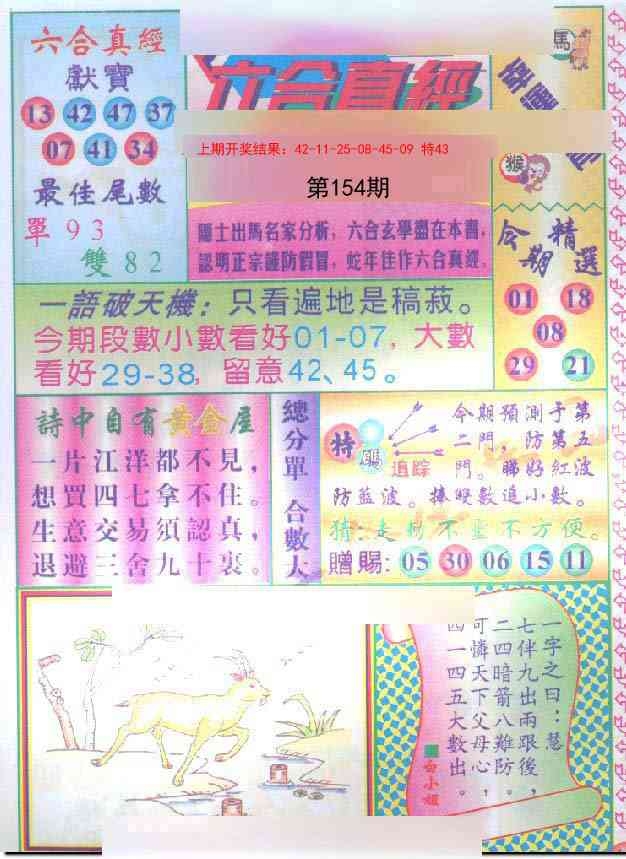 六合真經
獻寶
13 42 47 37
07 41 34
最佳尾數
單93
雙82
六合真經
上期开奖结果：42-11-25-08-45-09 特43
第154期
隱士出馬名家分析，六合玄學盡在本書，
認明正宗謹防假冒，蛇年佳作六合真經。
馬
猴
今期精選
01 18
08
29 21
一語破天機：只看遍地是稿菽。
今期段數小數看好01-07，大數
看好29-38，留意42、45。
詩中自有黃金屋
一片江洋都不見，
想買四七拿不住。
生意交易須認真，
退避三舍九十裏。
總分單 合數大
特碼
追踪
今期預測于第
二門，防第五
門。睇好紅波
防藍波。揍雙數追小數。
猜：走粉不坐不方便。
贈賜：05 30 06 15 11
一字之曰：慧
七伴九出兩跟後，
二四暗箭八難防。
可憐天下父母心，
四一四五大數出。
白小姐